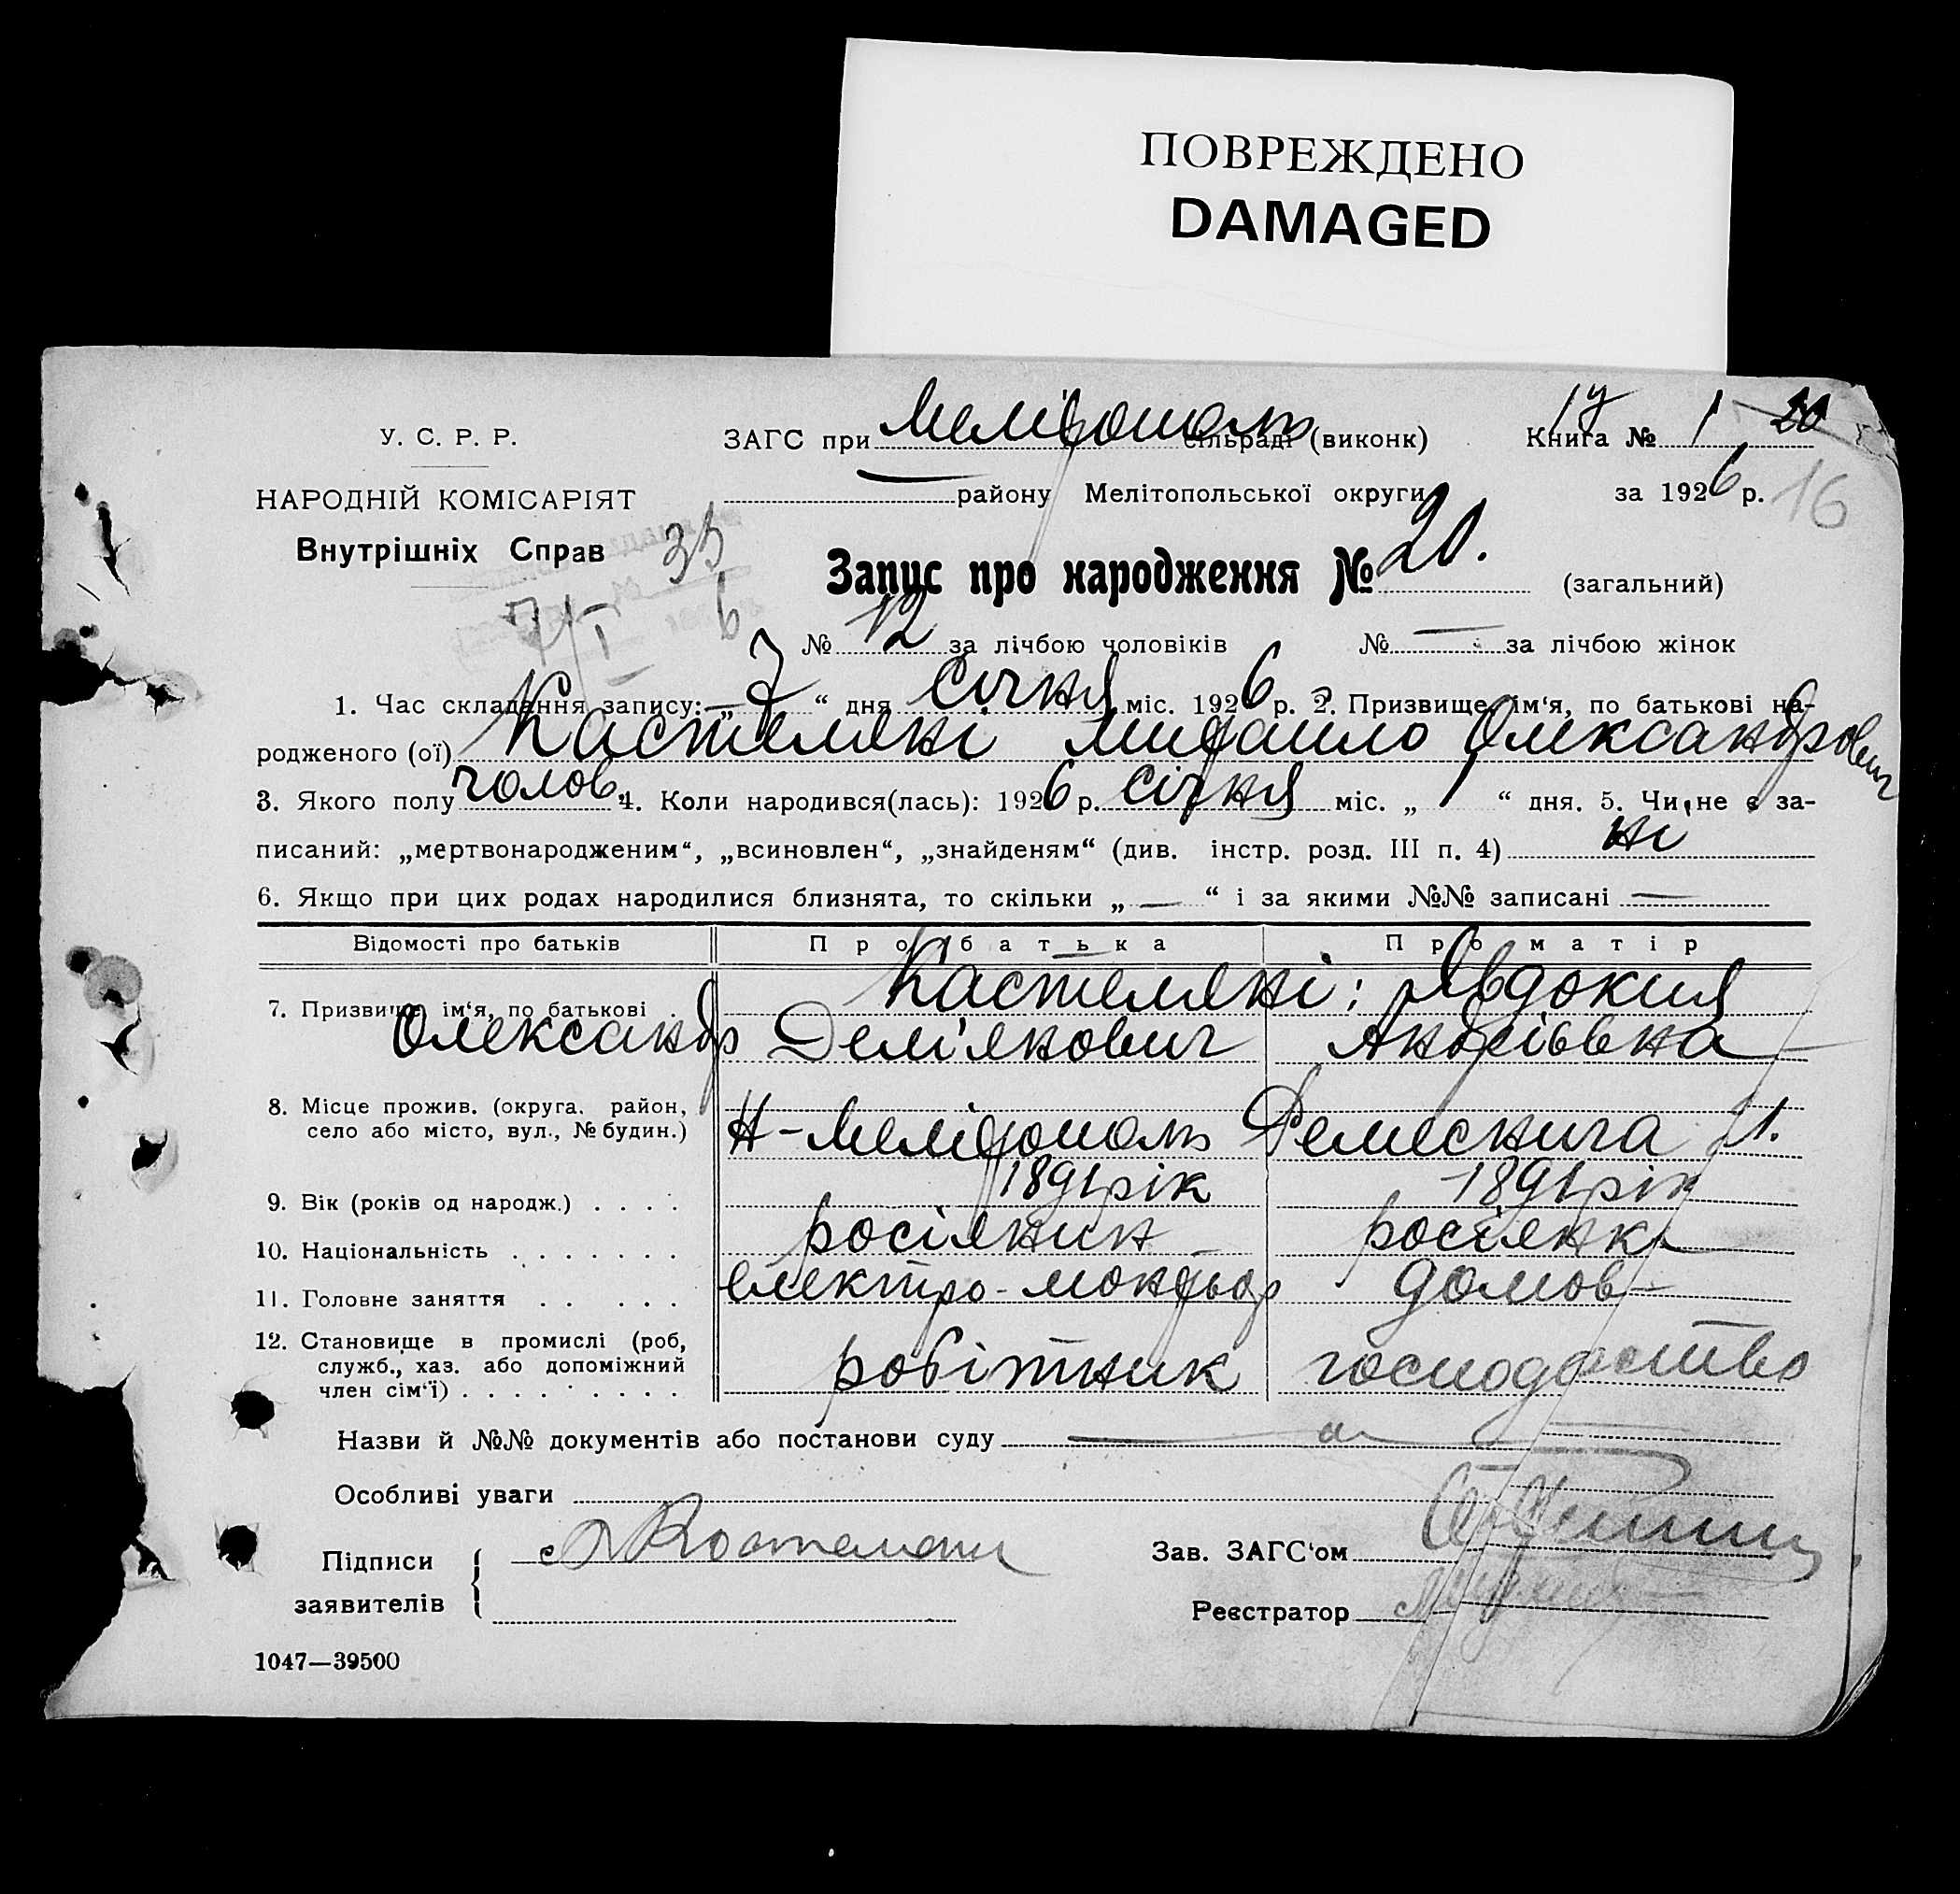 ПОВРЕЖДЕНО
DAMAGED
У. С. Р. Р.
ЗАГС при Мелітополь сільраді (виконк) Книга № 1 20
НАРОДНІЙ КОМІСАРІЯТ
— району Мелітопольської округи за 1926 р. 16
Внутрішніх Справ 35
Запис про народження № 20. (загальний)
7/I 6
№ 12 за лічбою чоловіків № — за лічбою жінок
1. Час складання запису: „ 7 “ дня січня міс. 1926 р. 2. Призвище, ім‘я, по батькові на-
родженого (ої) Кастеляні Михайло Олександрович
3. Якого полу чолов. 4. Коли народився(лась): 1926 р. січня міс. „ 1 “ дня. 5. Чи не є за-
писаний: „мертвонародженим“, „всиновлен“, „знайденям“ (див. інстр. розд. III п. 4) ні
6. Якщо при цих родах народилися близнята, то скільки „ — “ і за якими №№ записані —
Відомості про батьків Про батька Про матір
Кастеляні: Явдокия
7. Призвище, ім‘я, по батькові
Олександр Дем'янович Андріівна
8. Місце прожив. (округа, район,
село або місто, вул., № будин.) Н-Мелітополь 21.
9. Вік (років од народж.) . . . . 1891 рік 1891 рік
10. Національність . . . . . . . росіянин росіянка
11. Головне заняття . . . . . електро-монтьор домов-
12. Становище в промислі (роб,
служб., хаз. або допоміжний робітник господарство
член сім‘ї) . . . . . . . . . .
Назви й №№ документів або постанови суду —
Особливі уваги
Підписи
заявителів
Зав. ЗАГС‘ом
Реєстратор
1047—39500